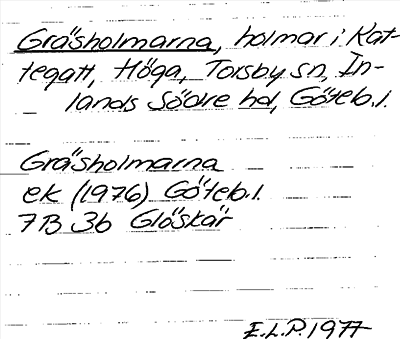 Gräsholmarna, holmar i Kat-
tegatt, Höga, Torsby sn, In-
lands Södre hd, Göteb.l.
Gräsholmarna
ek (1976) Göteb.l.
7B 3b Glöskär
E.L.P. 1977